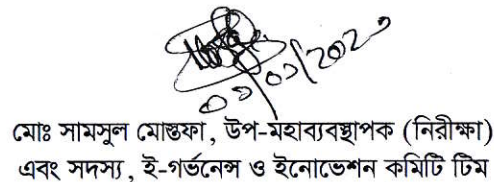 ০৩/০৩/২০২০
মোঃ সামসুল মোস্তফা, উপ-মহাব্যবস্থাপক (নিরীক্ষা)
এবং সদস্য, ই-গর্ভনেন্স ও ইনোভেশন কমিটি টিম